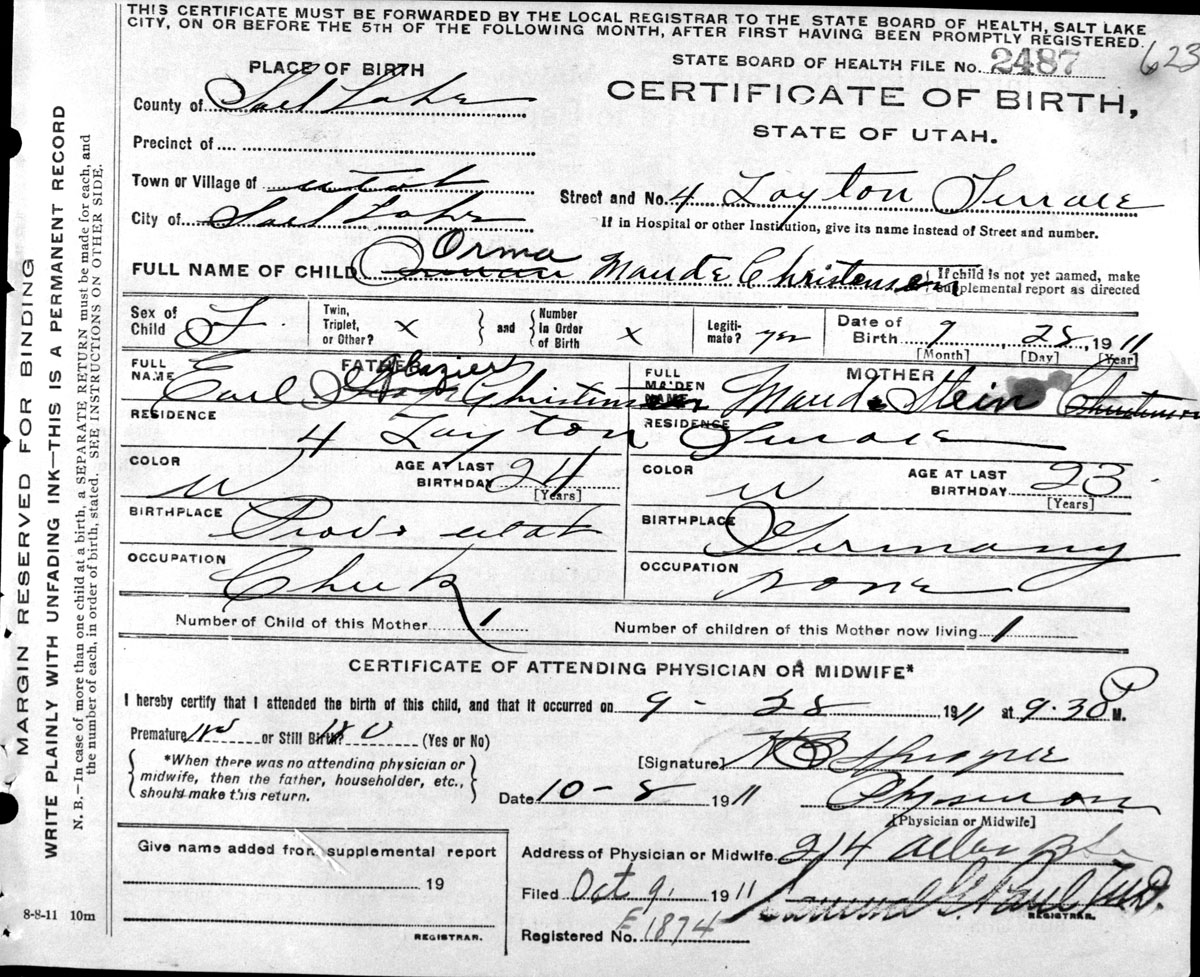 THIS CERTIFICATE MUST BE FORWARDED BY THE LOCAL REGISTRAR TO THE STATE BOARD OF HEALTH, SALT LAKE
CITY, ON OR BEFORE THE 5TH OF THE FOLLOWING MONTH, AFTER FIRST HAVING BEEN PROMPTLY REGISTERED.
623
STATE BOARD OF HEALTH FILE No. 2487
PLACE OF BIRTH
CERTIFICATE OF BIRTH,
STATE OF UTAH.
County of Salt Lake
Precinct of
Town or Village of Utah
Street and No. 4 Layton Terrace
City of Salt Lake
If in Hospital or other Institution, give its name instead of Street and number.
Orma
FULL NAME OF CHILD Maude Christensen
If child is not yet named, make
supplemental report as directed
Sex of Child F
Twin, Triplet, or Other? X and Number in Order of Birth X
Legiti-mate? yes
Date of Birth 9 28, 1911
[Month] [Day] [Year]
FATHER
FULL NAME Earl Glazier Christensen
MOTHER
FULL MAIDEN NAME Maude Stein Christensen
RESIDENCE 4 Layton Terrace
RESIDENCE
COLOR W AGE AT LAST BIRTHDAY 24 [Years]
COLOR W AGE AT LAST BIRTHDAY 23 [Years]
BIRTHPLACE Provo Utah
BIRTHPLACE Germany
OCCUPATION Clerk
OCCUPATION none
Number of Child of this Mother 1
Number of children of this Mother now living 1
CERTIFICATE OF ATTENDING PHYSICIAN OR MIDWIFE*
I hereby certify that I attended the birth of this child, and that it occurred on 9 - 28 1911 at 9.30 P M.
Premature No or Still Birth? No (Yes or No)
*When there was no attending physician or
midwife, then the father, householder, etc.,
should make this return.
[Signature] Sprague
Date 10-8 1911
Physician
[Physician or Midwife]
Give name added from supplemental report
19
REGISTRAR.
Address of Physician or Midwife 214
Filed Oct 9, 1911
Paul M.D.
REGISTRAR.
Registered No. E 1874
8-8-11 10m
MARGIN RESERVED FOR BINDING
WRITE PLAINLY WITH UNFADING INK—THIS IS A PERMANENT RECORD
N. B.—In case of more than one child at a birth, a SEPARATE RETURN must be made for each, and
the number of each, in order of birth, stated. SEE INSTRUCTIONS ON OTHER SIDE.